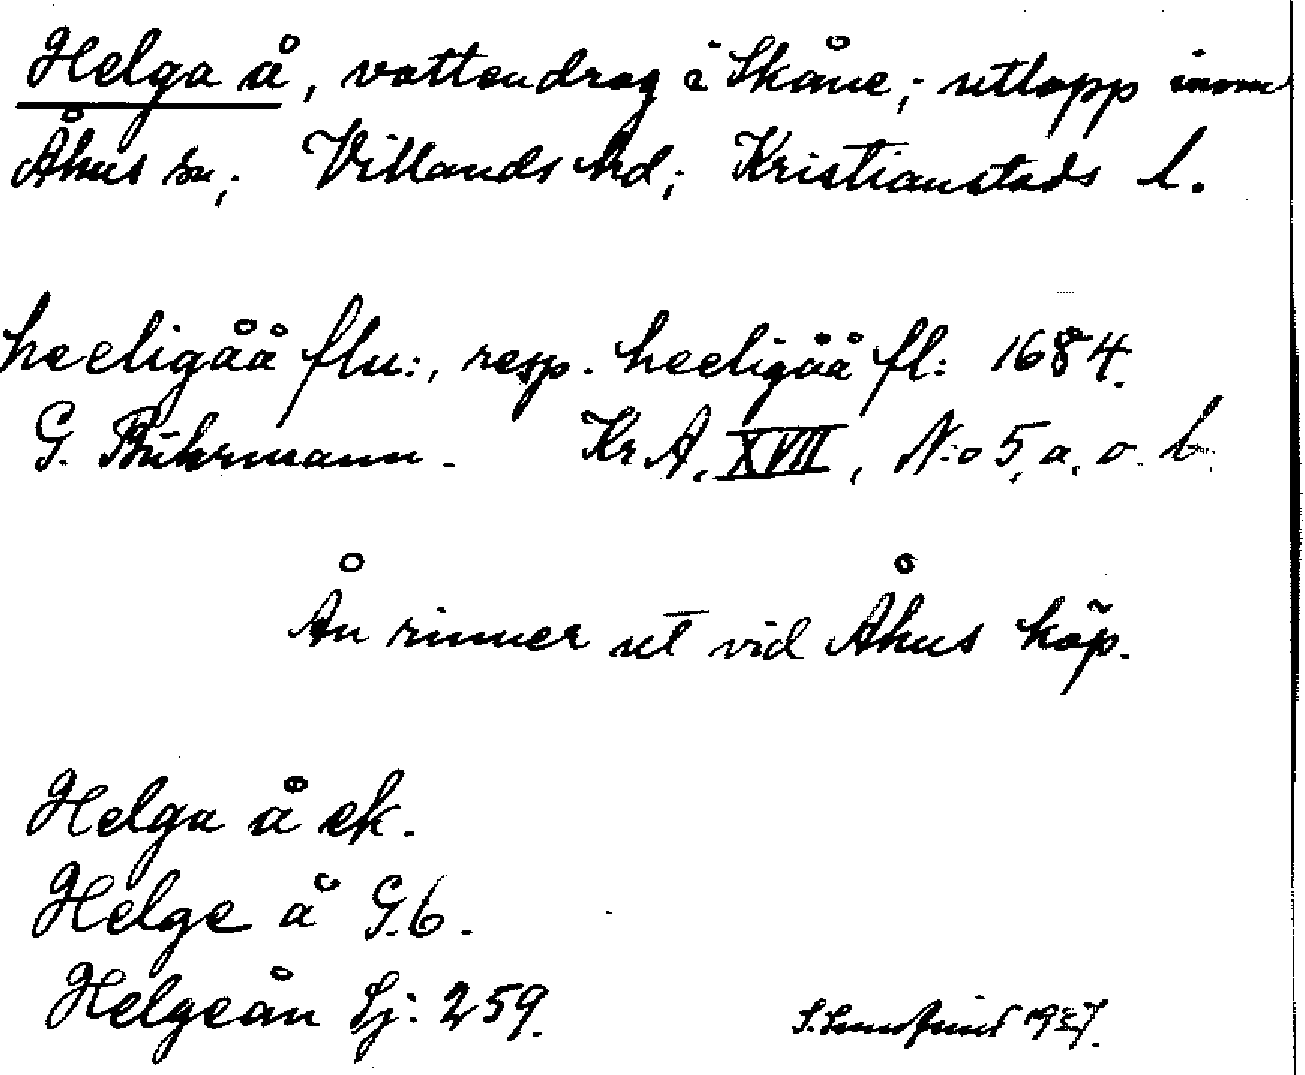 Helga å, vattendrag i Skåne; utlopp inom
Åhus sn; Villands hd; Kristianstads l.
heeligåå flu:, resp. heeligåå fl: 1684.
G. Buhrmann. Kr A. XVII, N:o 5, a. o. b.
Ån rinner ut vid Åhus köp.
Helga å ek.
Helge å G.6.
Helgeån Lj: 259.